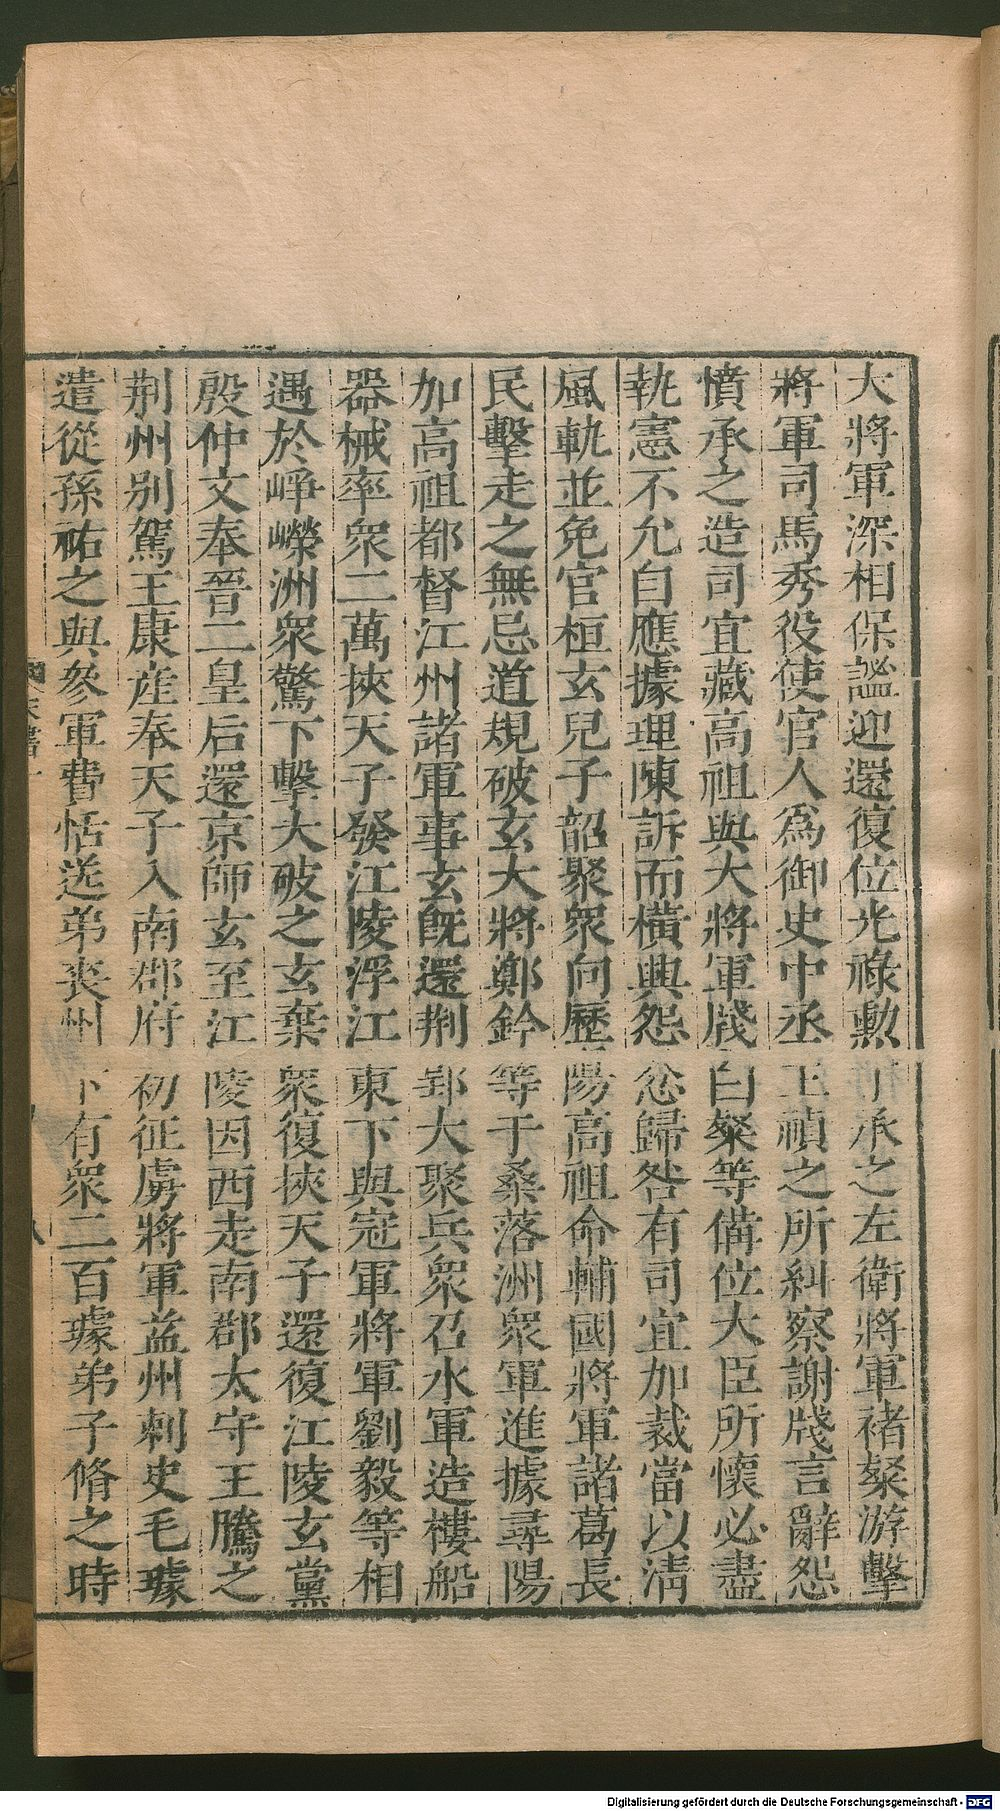 大將軍深相保謐迎還復位光祿勳丁承之左衛將軍褚粲游擊
將軍司馬秀役使官人爲御史中丞王禎之所糾察謝牋言辭怨
憤承之造司宜藏高祖與大將軍牋白粲等備位大臣所懷必盡
執憲不允自應據理陳訴而橫興怨忿歸咎有司宜加裁當以淸
風軌並免官桓玄兒子韶聚衆向歷陽高祖命輔國將軍諸葛長
民擊走之無忌道規破玄大將鄭鈴等于桑落洲衆軍進據尋陽
加高祖都督江州諸軍事玄旣還荆郢大聚兵衆召水軍造樓船
器械率衆二萬挾天子發江陵浮江東下與冠軍將軍劉毅等相
遇於崢嶸洲衆驚下擊大破之玄棄衆復挾天子還復江陵玄黨
殷仲文奉晉二皇后還京師玄至江陵因西走南郡太守王騰之
荆州別駕王康産奉天子入南郡府初征虜將軍益州刺史毛璩
遣從孫祐之與參軍費恬送弟喪州下有衆二百璩弟子脩之時
Digitalisierung gefördert durch die Deutsche Forschungsgemeinschaft - DFG